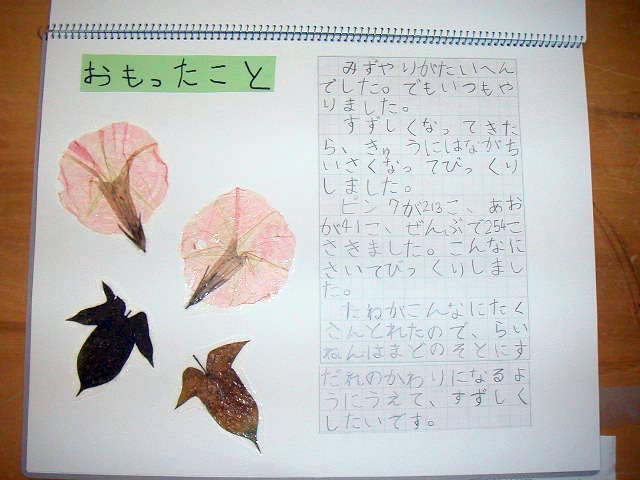 おもったこと
みずやりがたいへん
でした。でもいつもや
りました。
すずしくなってきた
ら、きゅうにはながち
いさくなってびっくり
しました。
ピンクが213こ、あお
が41こ、ぜんぶで254こ
さきました。こんなに
さいてびっくりしまし
た。
たねがこんなにたく
さんとれたので、らい
ねんはまどのそとにす
だれのかわりになるよ
うにうえて、すずしく
したいです。